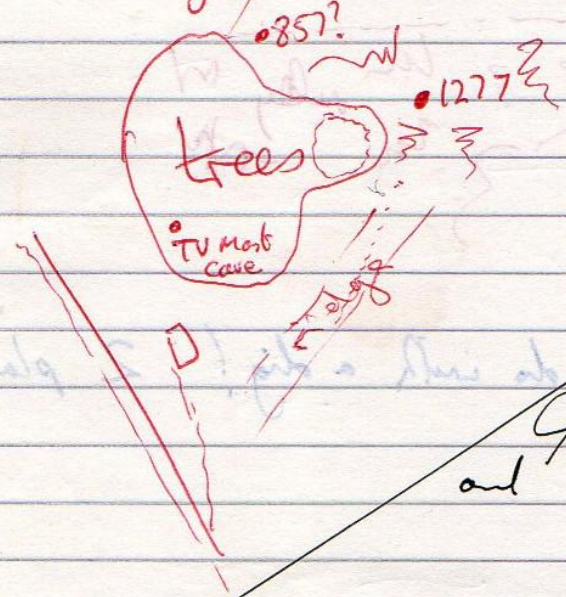 857?
1277
trees
TV Mast
Cave
edge
and